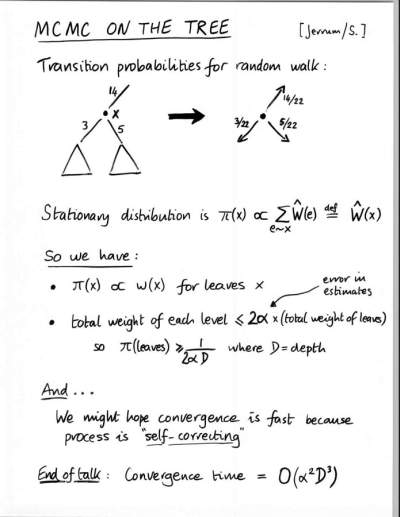 MCMC ON THE TREE [Jerrum/S.]
Transition probabilities for random walk :
14 x 3 5
14/22 3/22 5/22
Stationary distribution is π(x) ∝ Σ_{e~x} Ŵ(e) ≝ Ŵ(x)
So we have :
• π(x) ∝ w(x) for leaves x
error in
estimates
• total weight of each level ⩽ 2α × (total weight of leaves)
so π(leaves) ⩾ 1/(2αD) where D = depth
And ...
We might hope convergence is fast because
process is "self-correcting"
End of talk : Convergence time = O(α²D³)